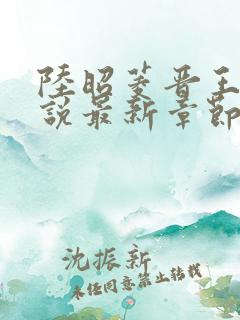 陸昭菱晉王
說最新章節
沈振新
未经同意禁止转载